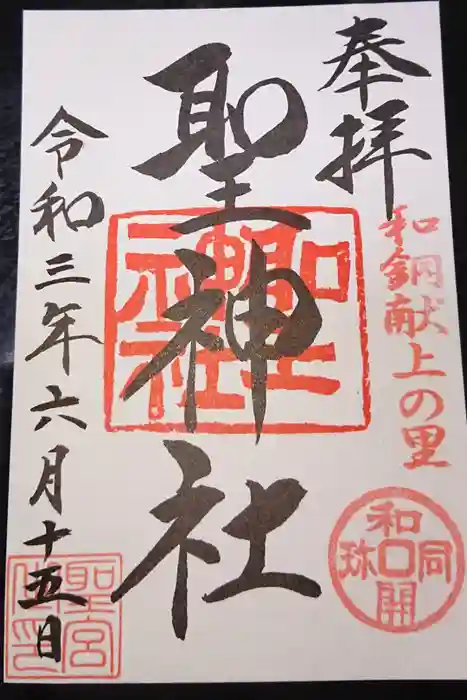 奉拝
和銅献上の里
聖神社
聖神社
和同開珎
令和三年六月十五日
聖宮